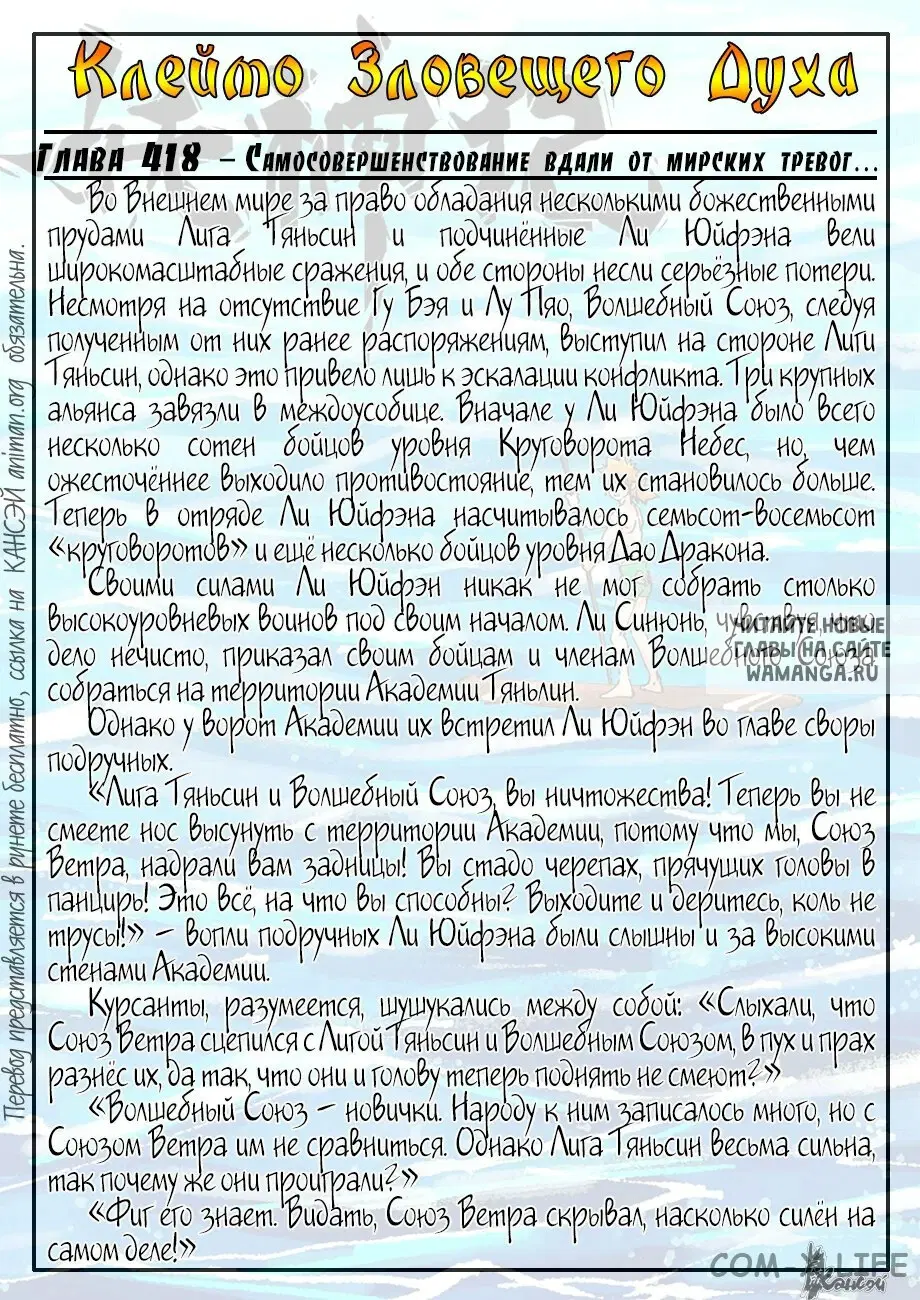 Клеймо Зловещего Духа
Глава 418 – Самосовершенствование вдали от мирских тревог...
Во Внешнем мире за право обладания несколькими божественными
прудами Лига Тяньсин и подчинённые Ли Юйфэна вели
широкомасштабные сражения, и обе стороны несли серьёзные потери.
Несмотря на отсутствие Гу Бэя и Лу Пяо, Волшебный Союз, следуя
полученным от них ранее распоряжениям, выступил на стороне Лиги
Тяньсин, однако это привело лишь к эскалации конфликта. Три крупных
альянса завязли в междоусобице. Вначале у Ли Юйфэна было всего
несколько сотен бойцов уровня Круговорота Небес, но, чем
ожесточённее выходило противостояние, тем их становилось больше.
Теперь в отряде Ли Юйфэна насчитывалось семьсот-восемьсот
«круговоротов» и ещё несколько бойцов уровня Дао Дракона.
Своими силами Ли Юйфэн никак не мог собрать столько
высокоуровневых воинов под своим началом. Ли Синюнь, чувствуя, что
дело нечисто, приказал своим бойцам и членам Волшебного Союза
собраться на территории Академии Тяньлин.
Однако у ворот Академии их встретил Ли Юйфэн во главе своры
подручных.
«Лига Тяньсин и Волшебный Союз, вы ничтожества! Теперь вы не
смеете нос высунуть с территории Академии, потому что мы, Союз
Ветра, надрали вам задницы! Вы стадо черепах, прячущих головы в
панцирь! Это всё, на что вы способны? Выходите и деритесь, коль не
трусы!» – вопли подручных Ли Юйфэна были слышны и за высокими
стенами Академии.
Курсанты, разумеется, шушукались между собой: «Слыхали, что
Союз Ветра сцепился с Лигой Тяньсин и Волшебным Союзом, в пух и прах
разнёс их, да так, что они и голову теперь поднять не смеют?»
«Волшебный Союз – новички. Народу к ним записалось много, но с
Союзом Ветра им не сравниться. Однако Лига Тяньсин весьма сильна,
так почему же они проиграли?»
«Фиг его знает. Видать, Союз Ветра скрывал, насколько силён на
самом деле!»
Перевод представляется в рунете бесплатно, ссылка на КАНСЭЙ animan.org обязательна.
ЧИТАЙТЕ НОВЫЕ
ГЛАВЫ НА САЙТЕ
WAMANGA.RU
COM-X LIFE
Кансэй